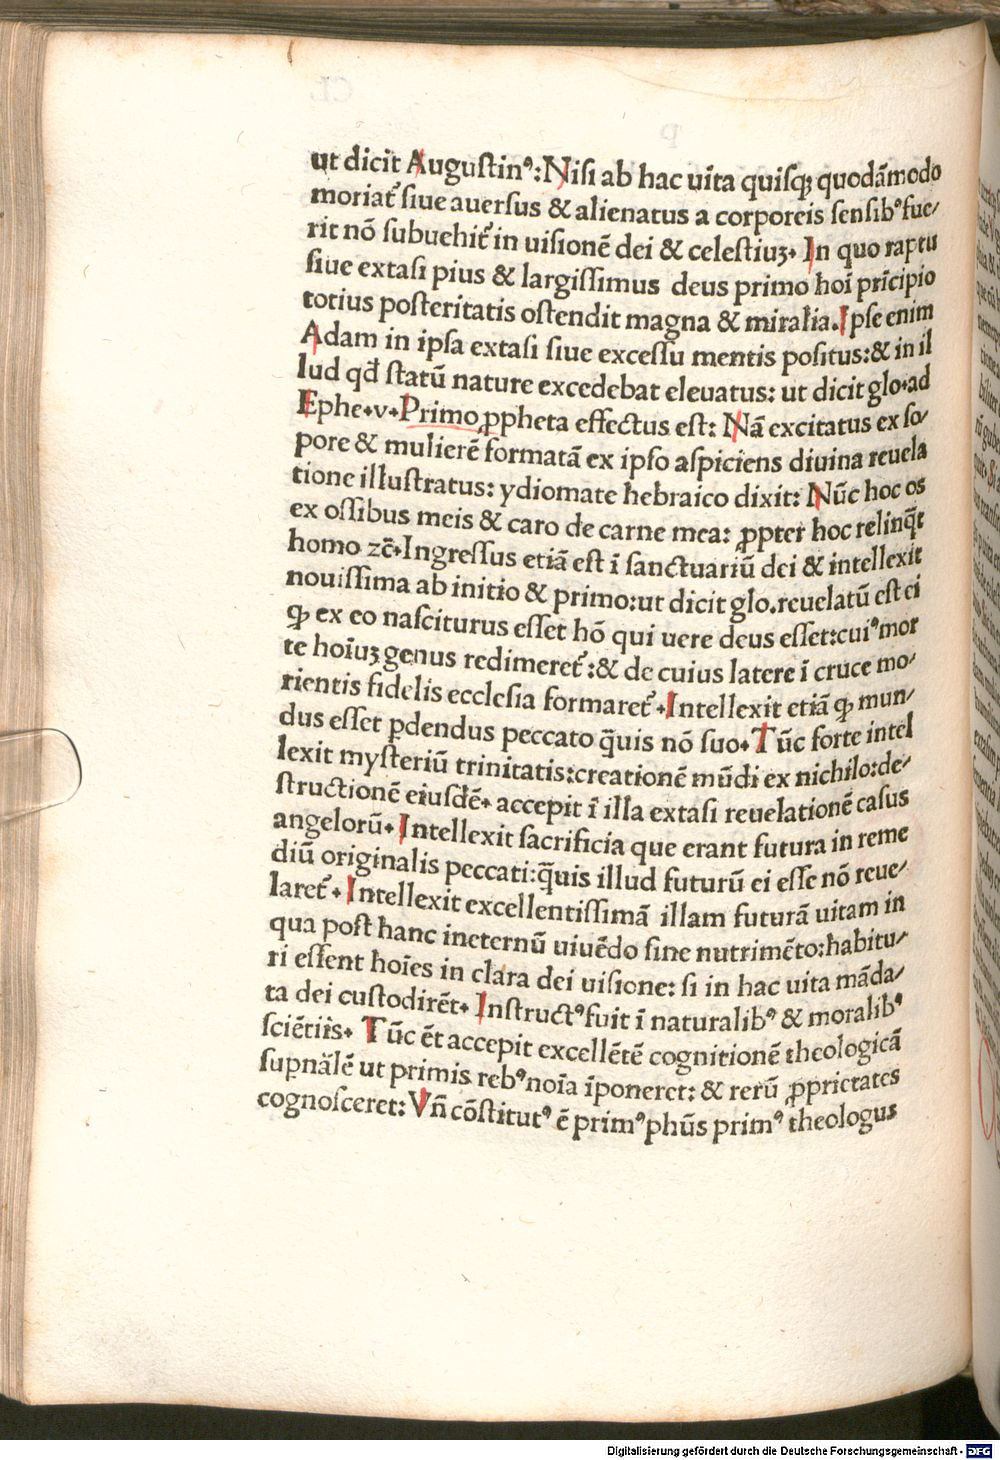 ut dicit Augustinꝰ: Nisi ab hac uita quisqꝫ quodāmodo
moriat᷑ siue auersus & alienatus a corporeis sensibꝰ fue/
rit nō subuehit᷑ in uisionē dei & celestiuꝫ. In quo raptu
siue extasi pius & largissimus deus primo hoī prīcipio
totius posteritatis ostendit magna & miralia. Ipse enim
Adam in ipsa extasi siue excessu mentis positus: & in il
lud qđ statū nature excedebat eleuatus: ut dicit glo. ad
Ephe. v. Primo ꝓpheta effectus est: Nā excitatus ex so/
pore & mulierē formatā ex ipso aspiciens diuina reuela
tione illustratus: ydiomate hebraico dixit: Nūc hoc os
ex ossibus meis & caro de carne mea: ꝓpter hoc relinq̄t
homo zc̄. Ingressus etiā est ī sanctuariū dei & intellexit
nouissima ab initio & primo: ut dicit glo. reuelatū est ei
ꝙ ex eo nasciturus esset hō qui uere deus esset: cuiꝰ mor
te hoīuꝫ genus redimeret᷑: & de cuius latere ī cruce mo/
rientis fidelis ecclesia formaret᷑. Intellexit etiā ꝙ mun/
dus esset ꝑdendus peccato q̄uis nō suo. Tūc forte intel
lexit mysteriū trinitatis: creationē mūdi ex nichilo: de/
structionē eiusdē. accepit ī illa extasi reuelationē casus
angelorū. Intellexit sacrificia que erant futura in reme
diū originalis peccati: q̄uis illud futurū ei esse nō reue/
laret᷑. Intellexit excellentissimā illam futurā uitam in
qua post hanc ineternū uiuēdo sine nutrimēto: habitu/
ri essent hoīes in clara dei uisione: si in hac uita māda/
ta dei custodirēt. Instructꝰ fuit ī naturalibꝰ & moralibꝰ
sciētiis. Tūc ēt accepit excellētē cognitionē theologicā
supnālē ut primis rebꝰ noīa īponeret: & rerū ꝓprietates
cognosceret: Vñ cōstitutꝰ ē primꝰ phūs primꝰ theologus
Digitalisierung gefördert durch die Deutsche Forschungsgemeinschaft - DFG